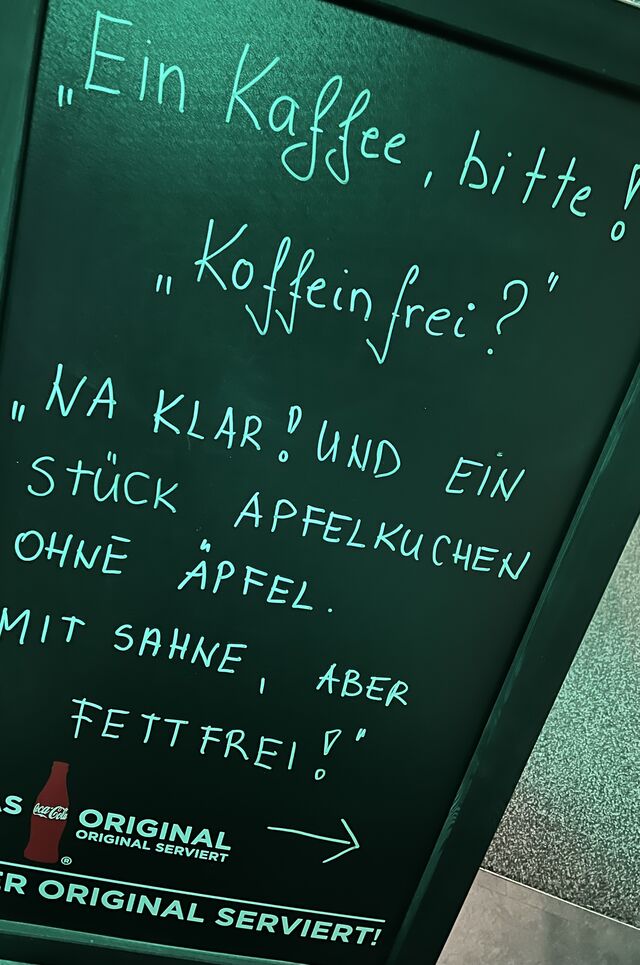 „Ein Kaffee, bitte!
„Koffeinfrei?"
„NA KLAR! UND EIN
STÜCK APFELKUCHEN
OHNE ÄPFEL.
MIT SAHNE, ABER
FETTFREI!"
AS Coca-Cola ORIGINAL
ORIGINAL SERVIERT
®
ER ORIGINAL SERVIERT!